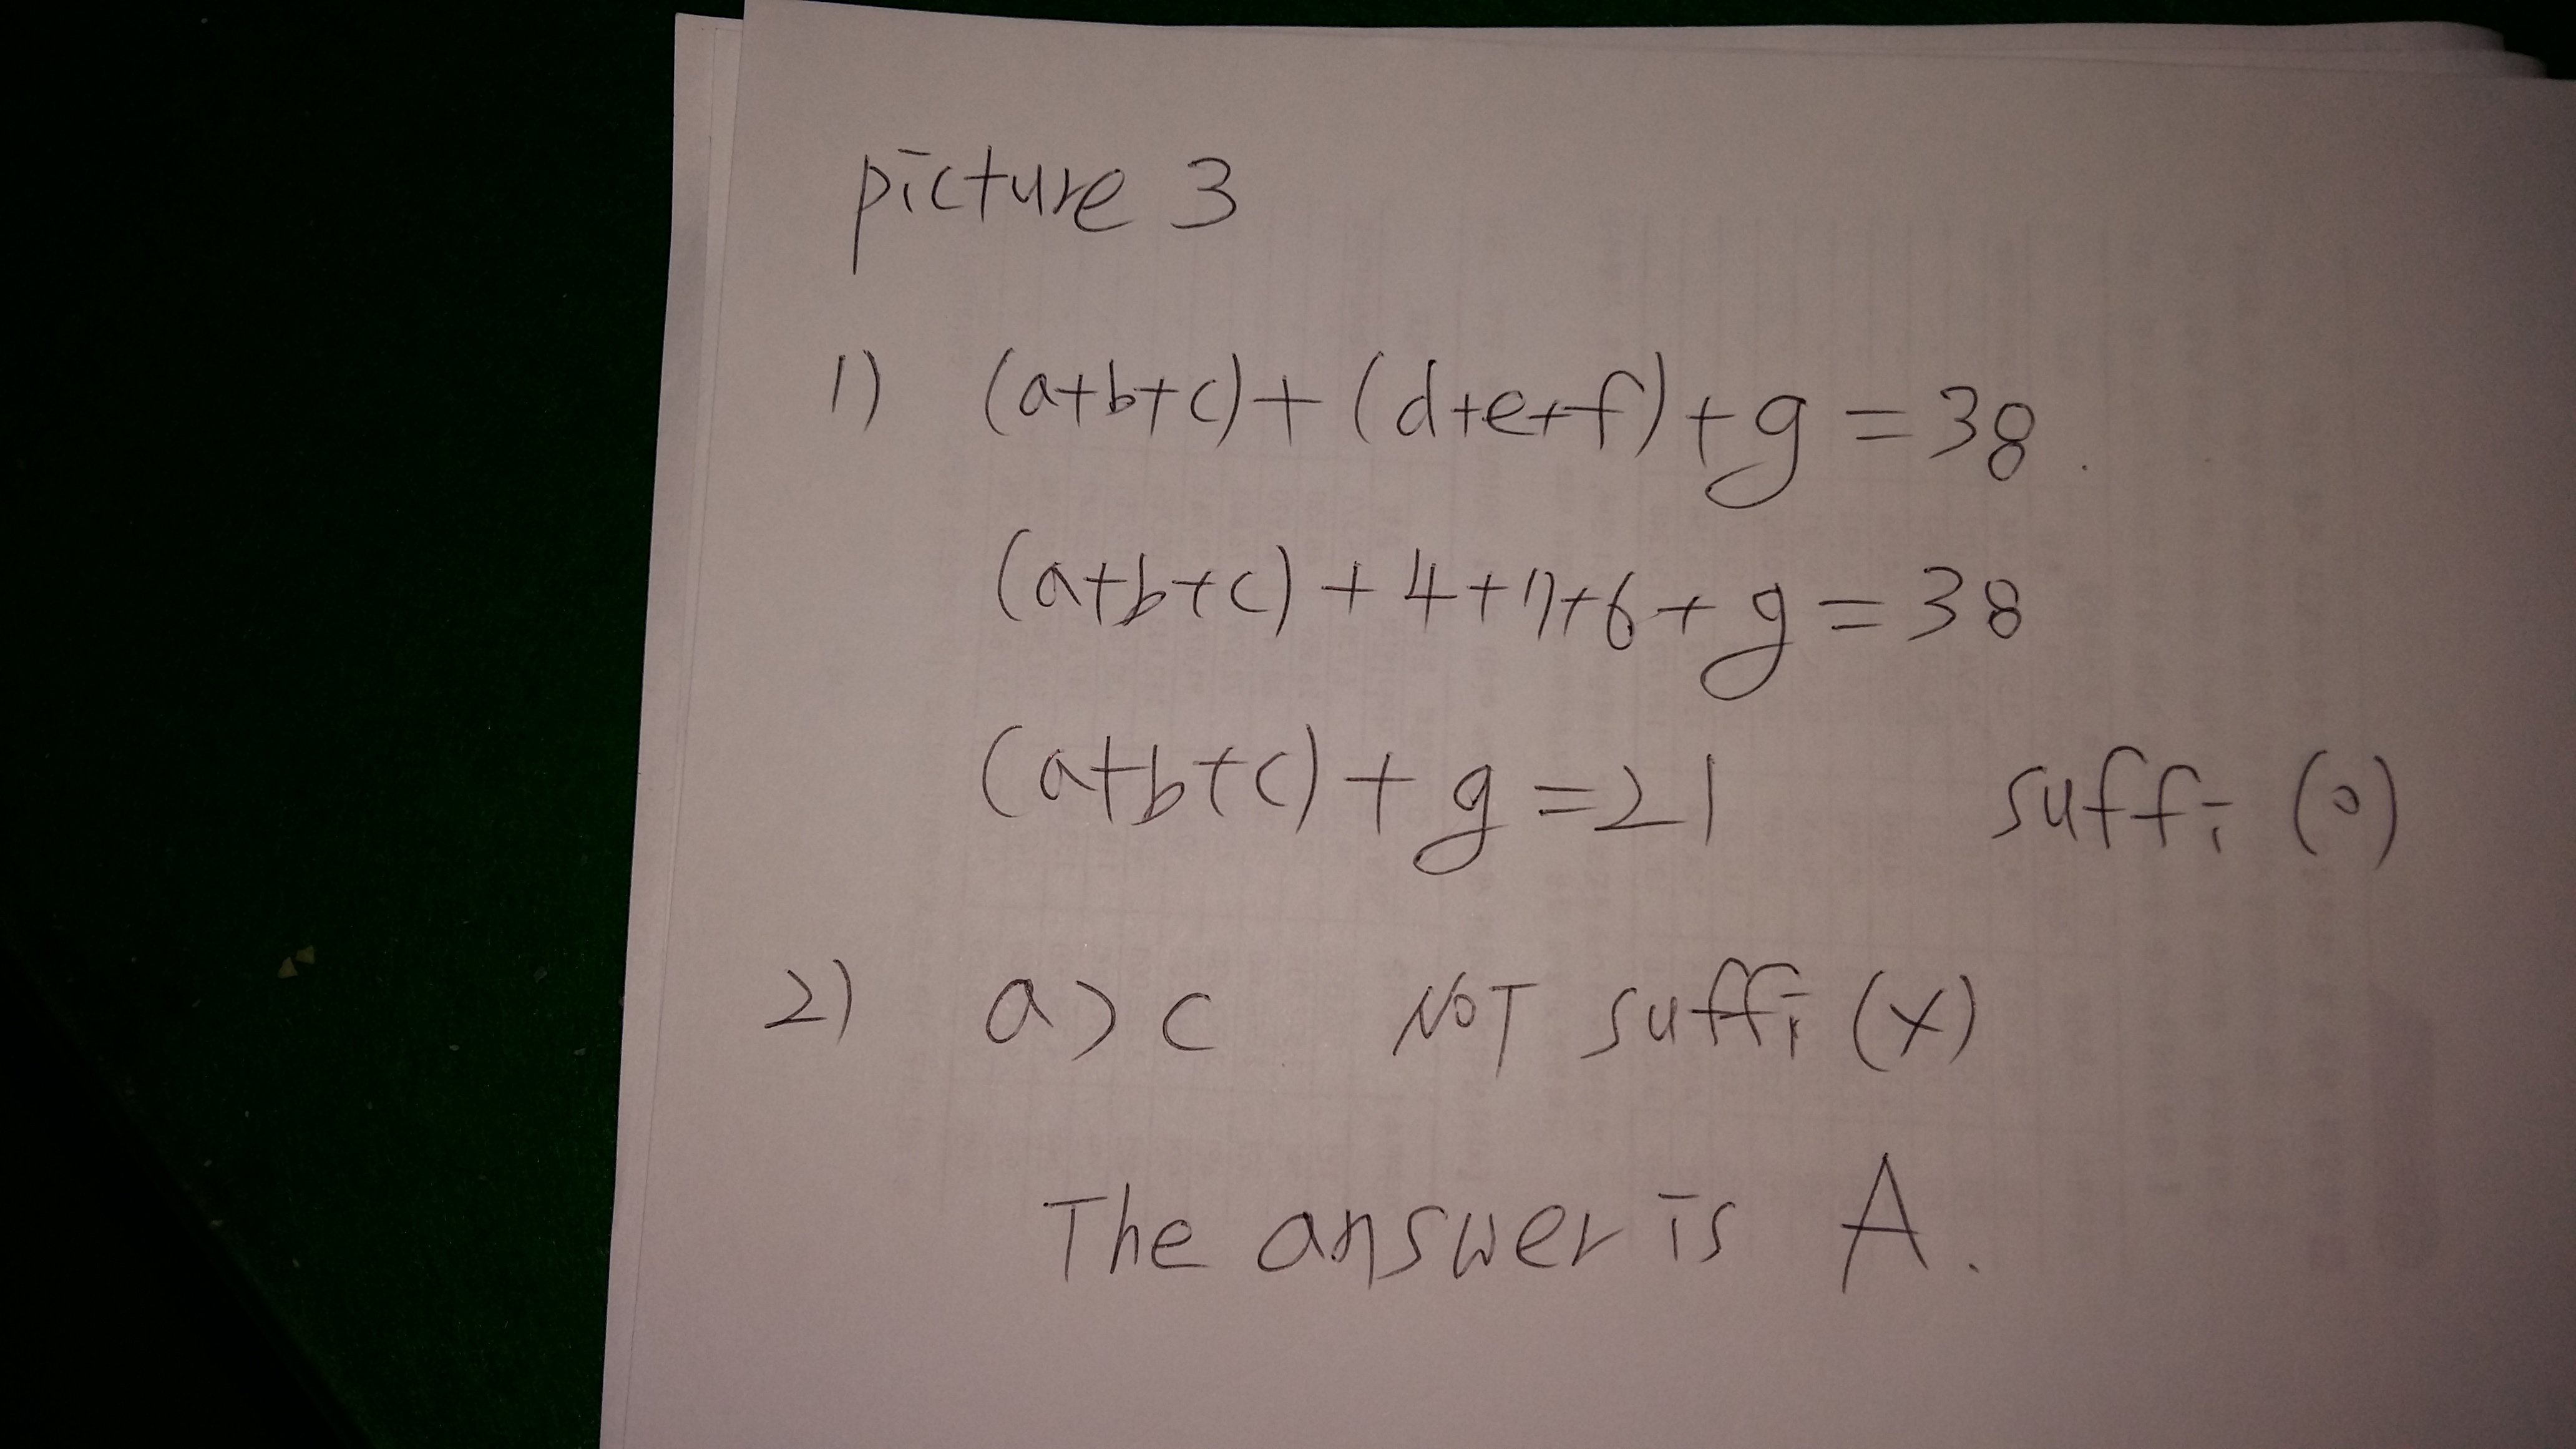 picture 3
1) (a+b+c)+(d+e+f)+g=38.
(a+b+c)+4+7+6+g=38
(a+b+c)+g=21 suffi (o)
2) a>c NOT suffi (x)
The answer is A.